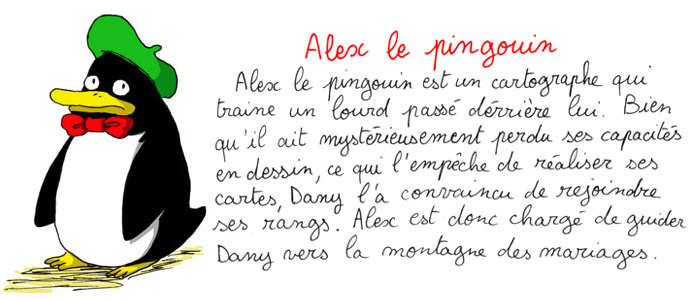 Alex le pingouin
Alex le pingouin est un cartographe qui
traine un lourd passé dérrière lui. Bien
qu'il ait mystérieusement perdu ses capacités
en dessin, ce qui l'empêche de réaliser ses
cartes, Dany l'a convaincu de rejoindre
ses rangs. Alex est donc chargé de guider
Dany vers la montagne des mariages.